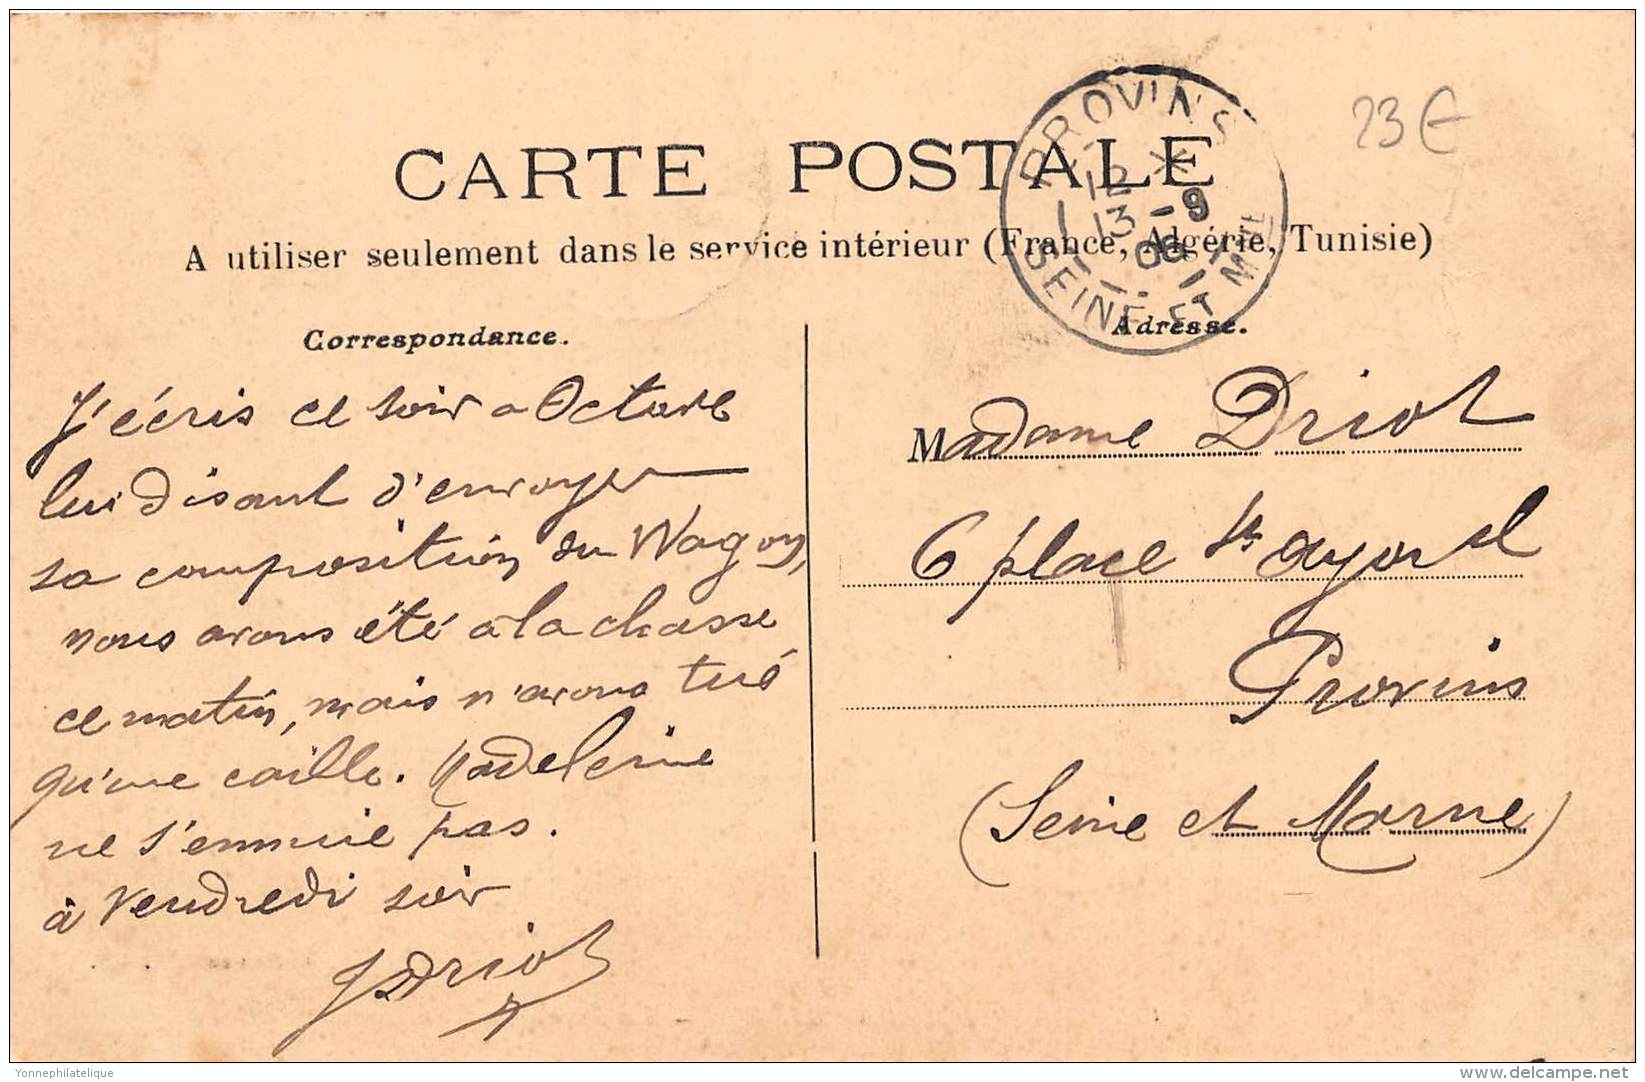 CARTE POSTALE
A utiliser seulement dans le service intérieur (France, Algérie, Tunisie)
PROVINS
12
13 - 9
06
SEINE ET MNE
23 €
Correspondance.
J'écris ce soir a Octave
lui disant d'envoyer
sa composition du Wagon,
nous avons été a la chasse
ce matin, mais n'avons tué
qu'une caille. Madeleine
ne s'ennuie pas.
à Vendredi soir
J Driot
Adresse.
Madame Driot
6 place St ayoul
Provins
(Seine et Marne)
Yonnephilatelique
delcampe.net